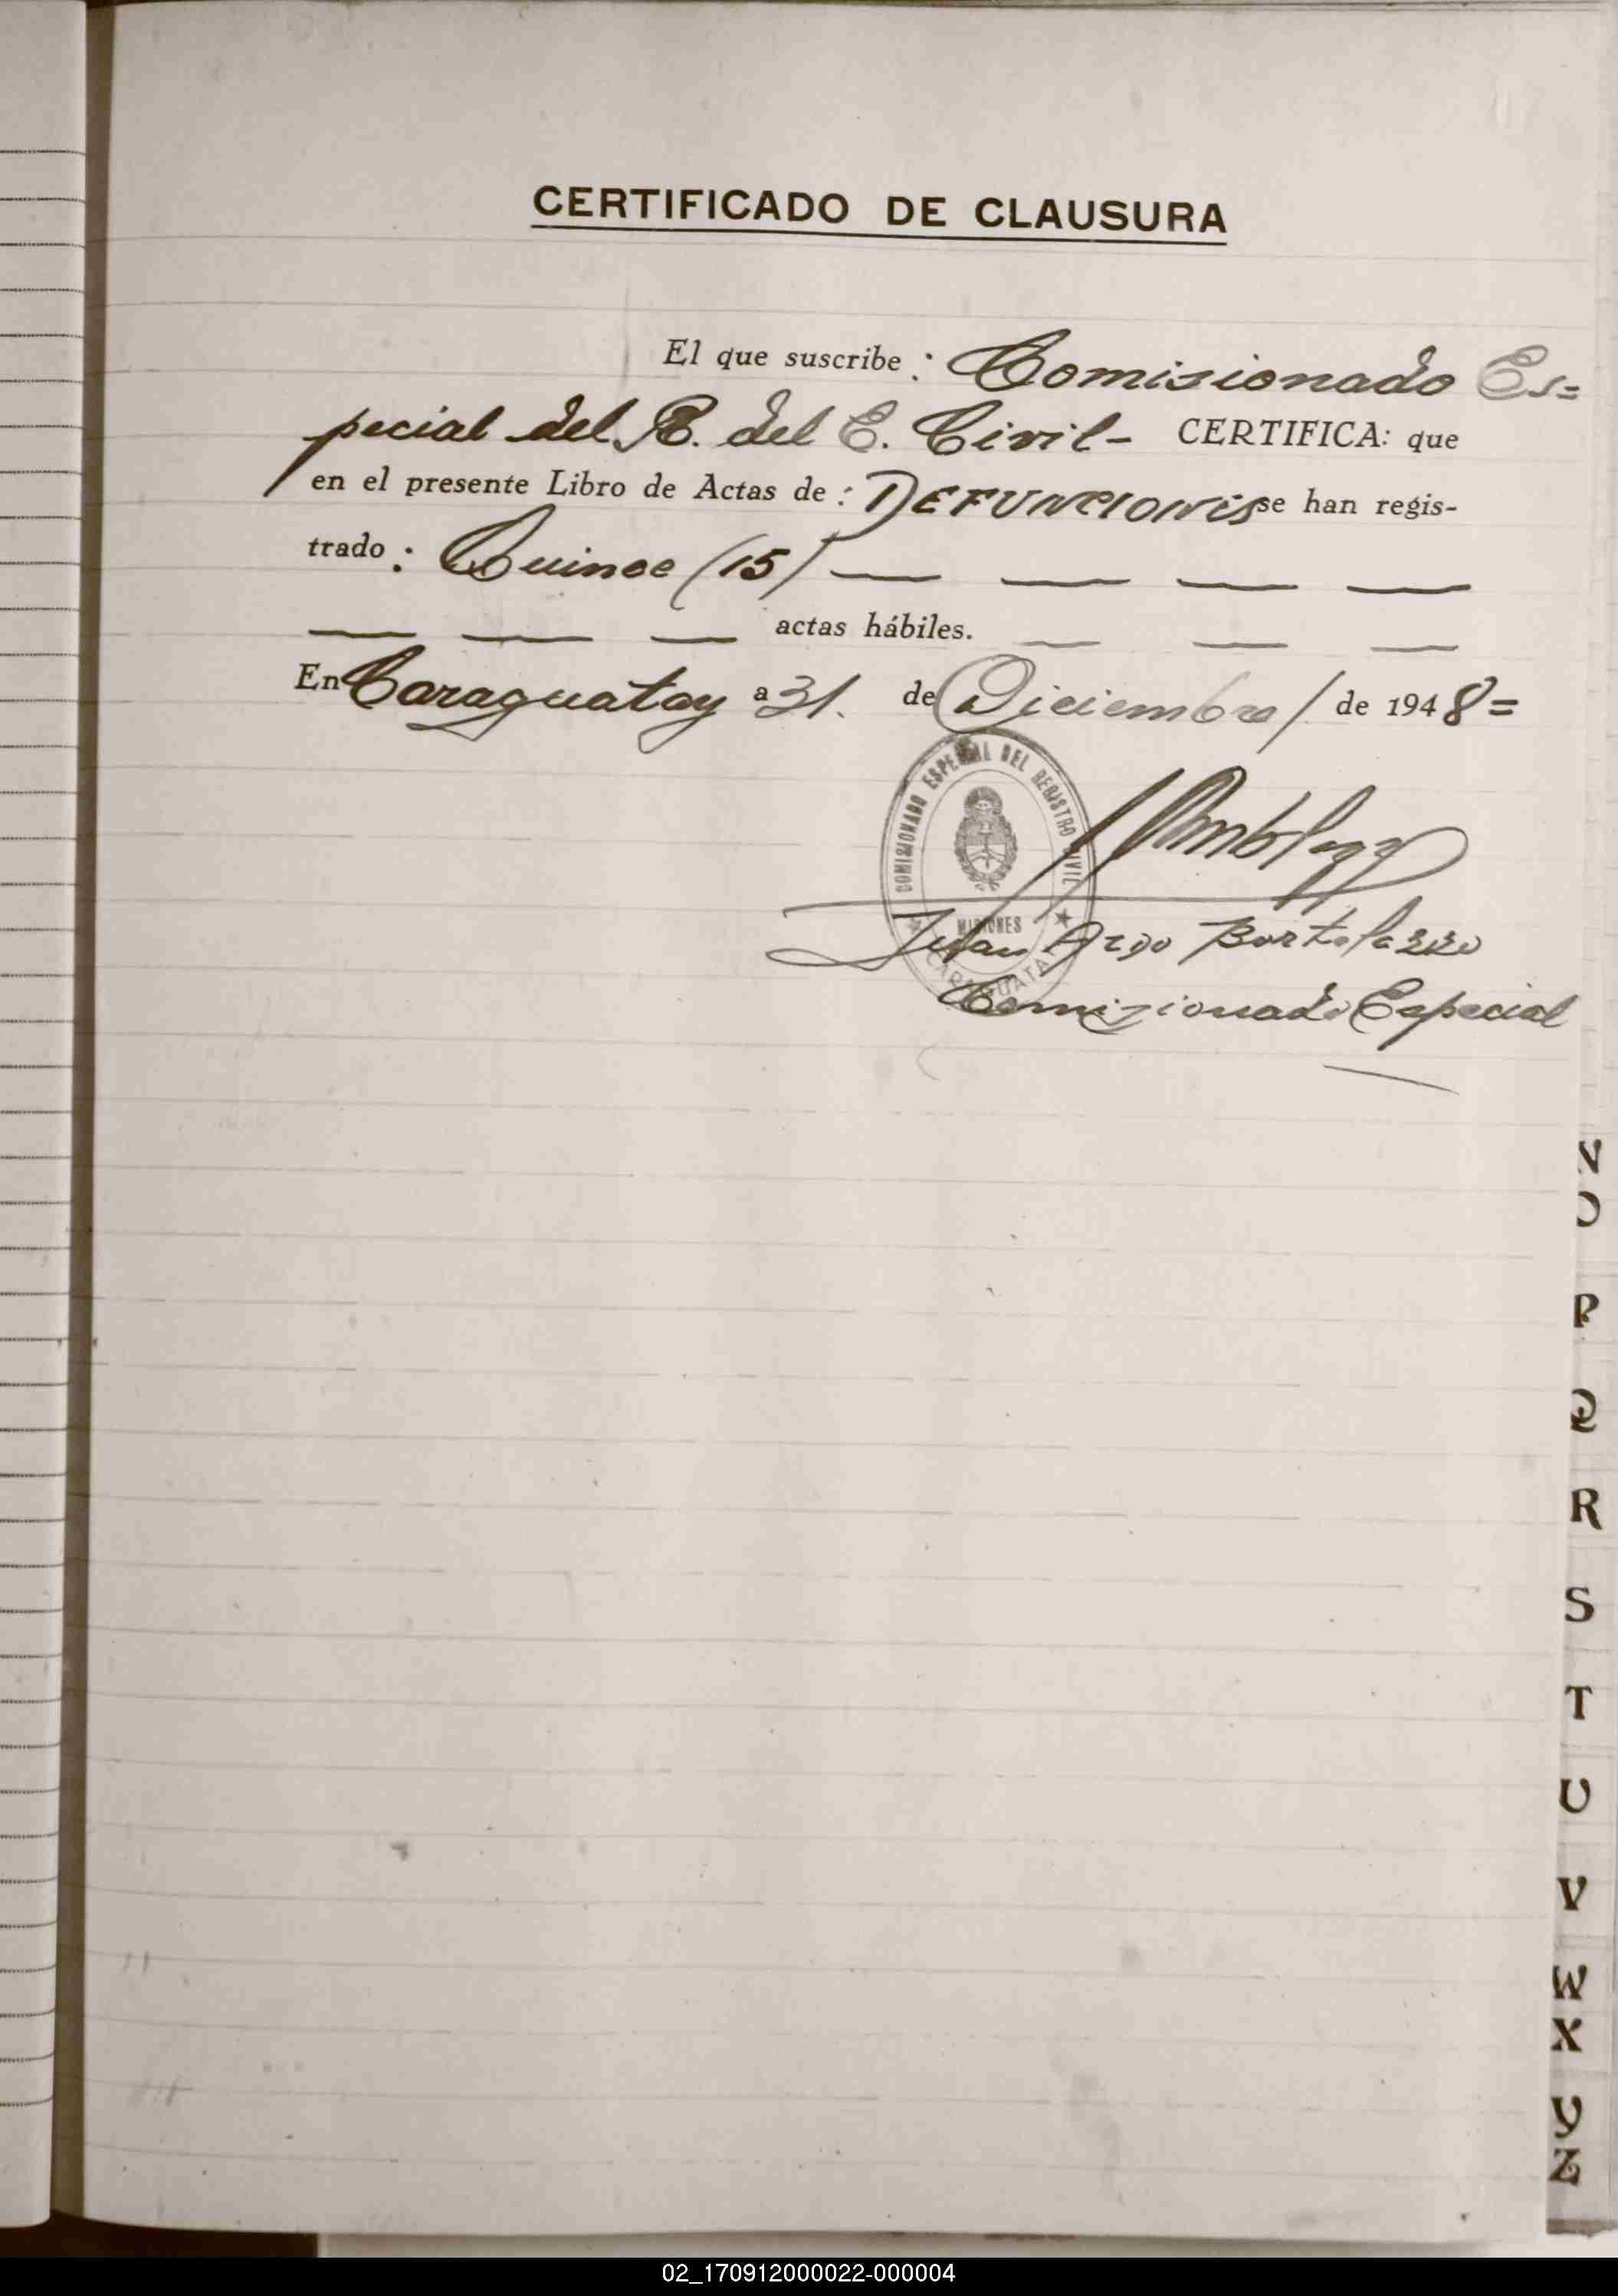 CERTIFICADO DE CLAUSURA
El que suscribe : Comisionado Es=
pecial del R. del E. Civil- CERTIFICA: que
en el presente Libro de Actas de : DEFUNCIONES se han regis-
trado : Quince (15) — — — —
— — — actas hábiles. — — —
En Caraguatay a 31. de Diciembre / de 1948=
COMISIONADO ESPECIAL DEL REGISTRO CIVIL
MISIONES
CARAGUATAY
Juan Bortolazzo
Comisionado Especial
N
O
P
Q
R
S
T
U
V
W
X
Y
Z
02_170912000022-000004